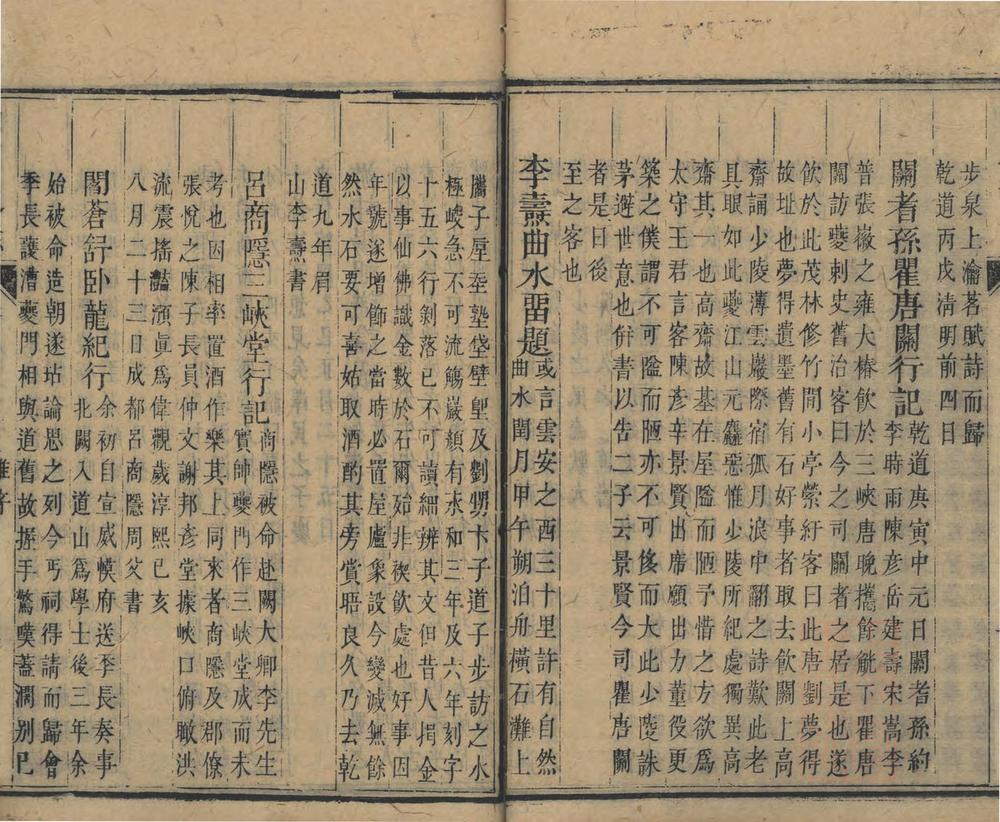 步泉上瀹茗賦詩而歸
乾道丙戌淸明前四日
關耆孫瞿唐關行記乾道庚寅中元日關耆孫約
李時雨陳彥岳建壽宋嵩李
普張㠓之雍大椿飲於三峽唐晚攜餘觥下瞿唐
關訪夔刺史舊治客曰今之司關者之居是也遂
飲於此茂林修竹間小亭縈紆客曰此唐劉夢得
故址也夢得遺墨舊有石好事者取去飲關上高
齋誦少陵薄雲巖際宿孤月浪中翻之詩歎此老
具眼如此夔江山元麤惡惟少陵所紀處獨異高
齋其一也高齋故基在屋隘而陋予惜之方欲爲
太守王君言客陳彥辛景賢出席願出力董役更
築之僕謂不可隘而陋亦不可侈而大此少陵誅
茅避世意也併書以告二子云景賢今司瞿唐關
者是日後
至之客也
李燾曲水留題或言雲安之西三十里許有自然
曲水閏月甲午朔泊舟橫石灘上
攜子垕塾垡壁㙷及劉甥卞子道子步訪之水
極峻急不可流觴巖顛有永和三年及六年刻字
十五六行剝落已不可讀細辨其文但昔人捐金
以事仙佛識金數於石爾殆非禊飲處也好事因
年號遂增飾之當時必置屋廬象設今變滅無餘
然水石要可喜姑取酒酌其旁賞晤良久乃去乾
道九年眉
山李燾書
呂商隱三峽堂行記商隱被命赴闕大卿李先生
實帥夔門作三峽堂成而未
考也因相率置酒作樂其上同來者商隱及郡僚
張悅之陳子長員仲文謝邦彥堂據峽口俯瞰洪
流震搖灩澦眞爲偉觀歲淳熙己亥
八月二十三日成都呂商隱周父書
閻蒼舒卧龍紀行余初自宣威幙府送季長奏事
北闕入道山爲學士後三年余
始被命造朝遂玷論思之列今丐祠得請而歸會
季長護漕夔門相與道舊故握手驚嘆蓋濶别已